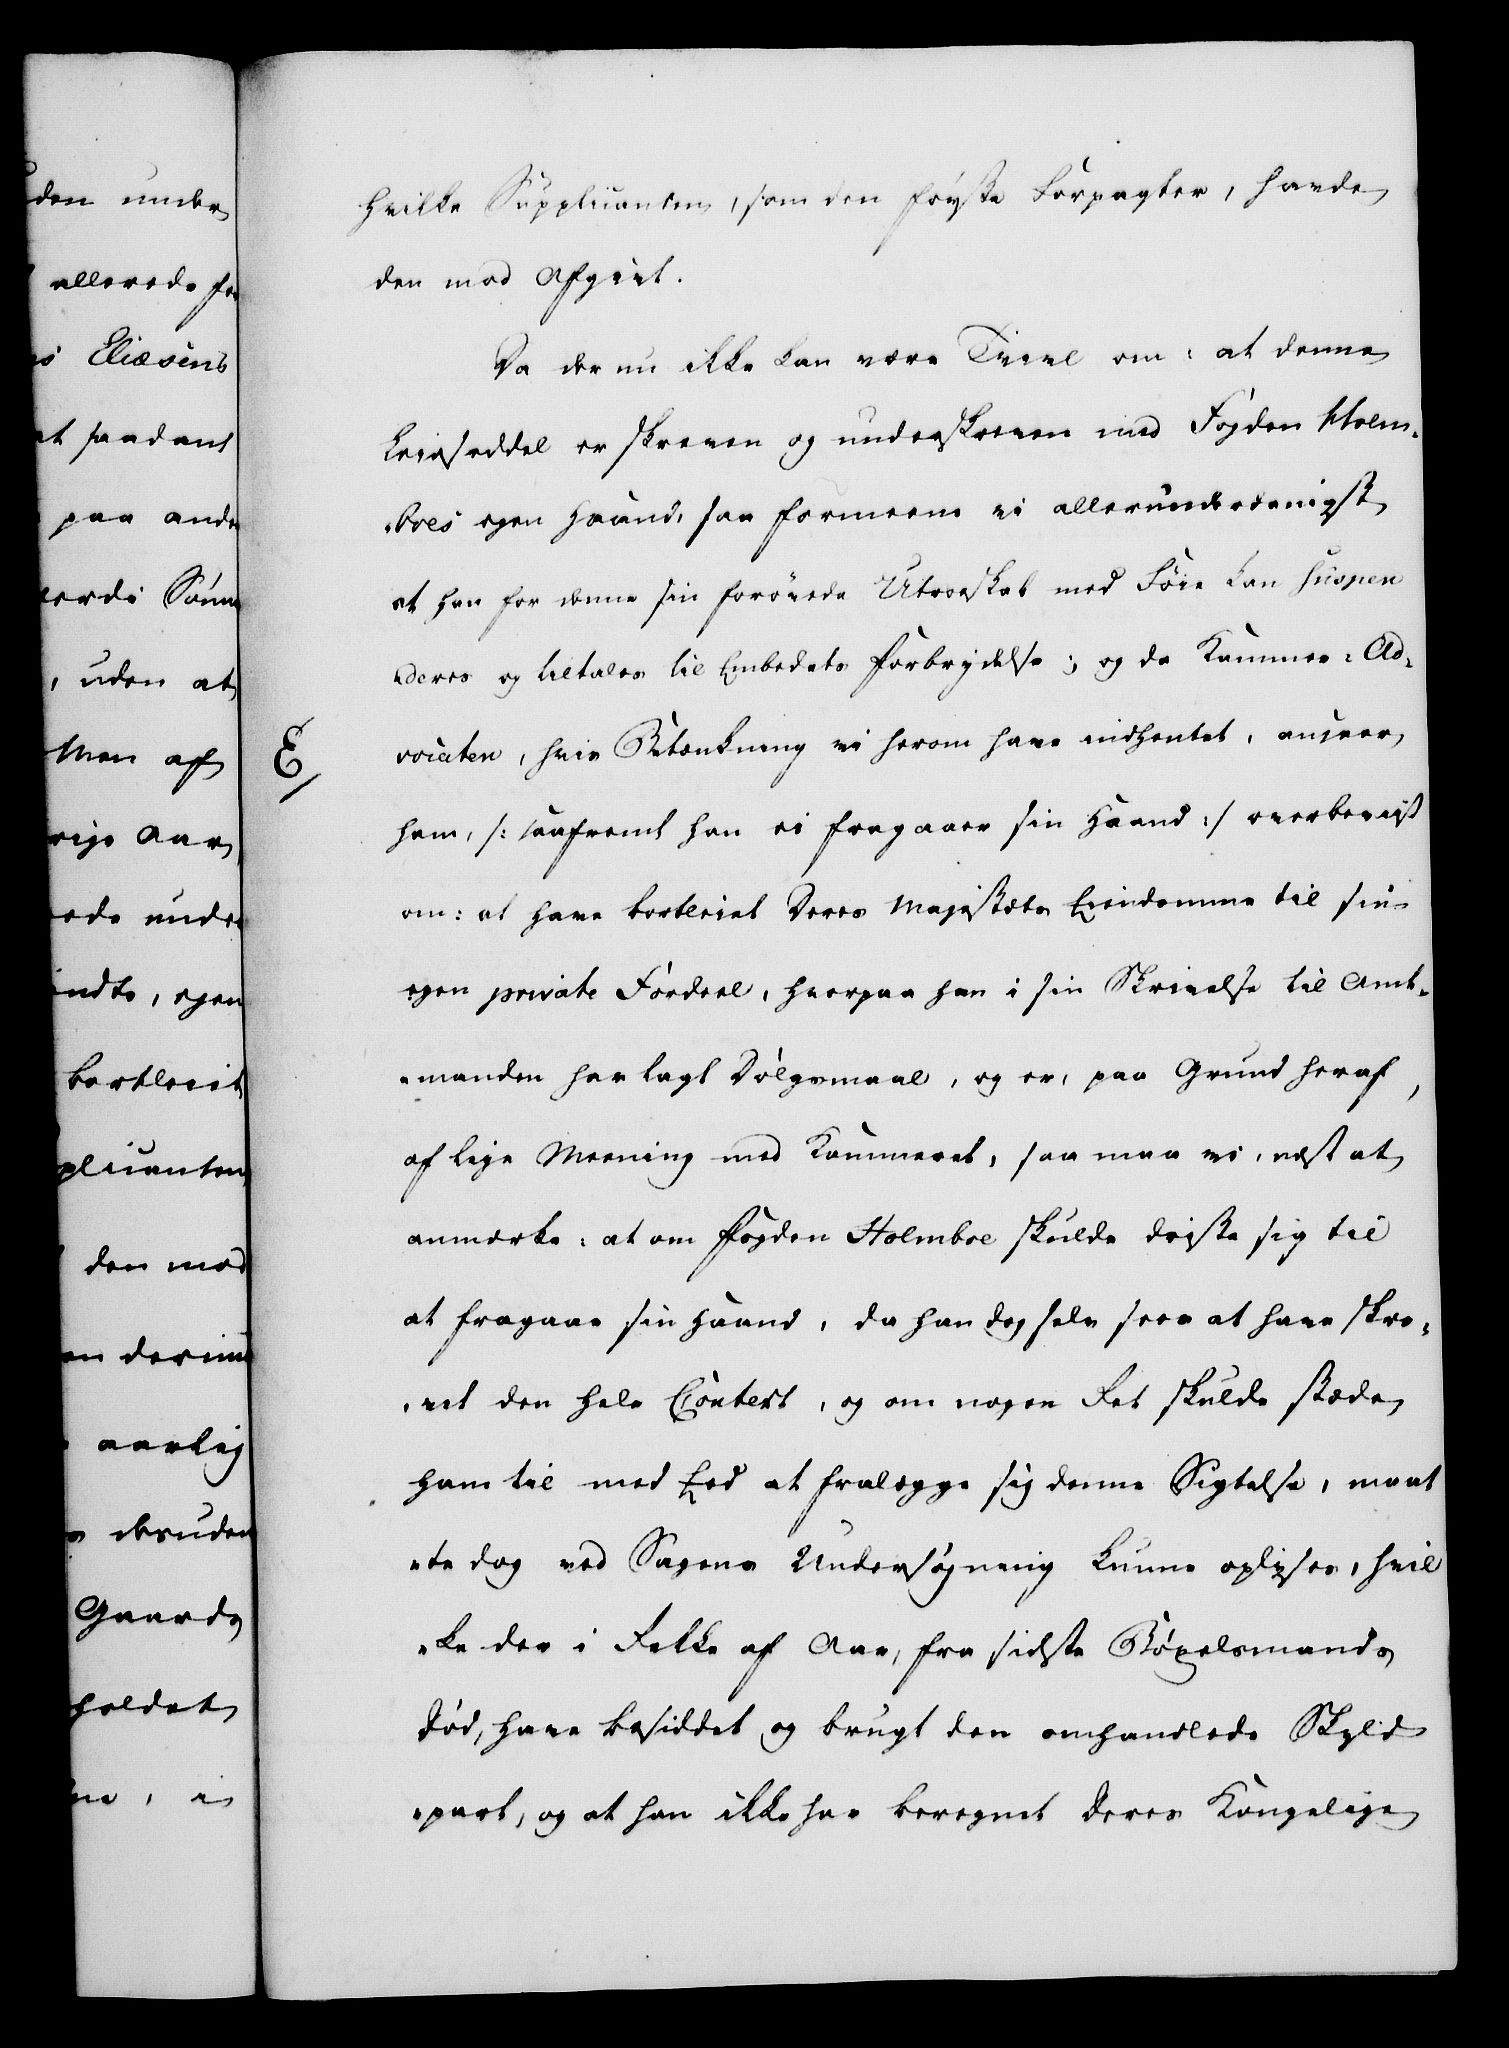 den under
allerede for
Eliæsens
at saadant
paa andr
værdi Sønn
, uden at
Men af
rige Aar
ede under
indte, egen
bortleiet
plicanten
den mod
en derimod
aarlig
desuden
Gaards
holdet
ne, i
hvilke Supplicanten, som den høyste Forpagter, havde
den mod Afgivt.
Da der nu ikke kan være Tvivl om: at denne
Leiesæddel er skreven og underskreven med Fogden Holm-
-boes egen Haand, saa formeene vi allerunderdanigst
at han for denne sin forøvede Utroeskab med Føie kan suspen
-deres og tiltales til Embedets Forbrydelse; og da Kammer-Ad-
E/
vocaten, hvis Betænkning vi herom have indhentet, anseer
ham, /: saafremt han ei fragaaer sin Haand :/ overbeviist
om: at have bortleiet Deres Majestæts Eiendomme til sin
egen private Fordeel, hvorpaa han i sin Skrivelse til Amt-
-manden har lagt Dølgsmaal, og er, paa Grund heraf,
af lige Meening med Kammeret, saa maa vi, næst at
anmærke: at om Fogden Holmboe skulde driste sig til
at fragaae sin Haand, da han dog selv sees at have skre-
-vet den hele Context, og om nogen Ret skulde stæde
ham til med Eed at fralægge sig denne Sigtelse, maat
-te dog ved Sagens Undersøgning kunne oplyses, hvil
-ke der i Rekke af Aar, fra sidste Bøxelsmands
Død, have besiddet og brugt den omhandlede Skyld
-part, og at han ikke har beregnet Deres Kongelige